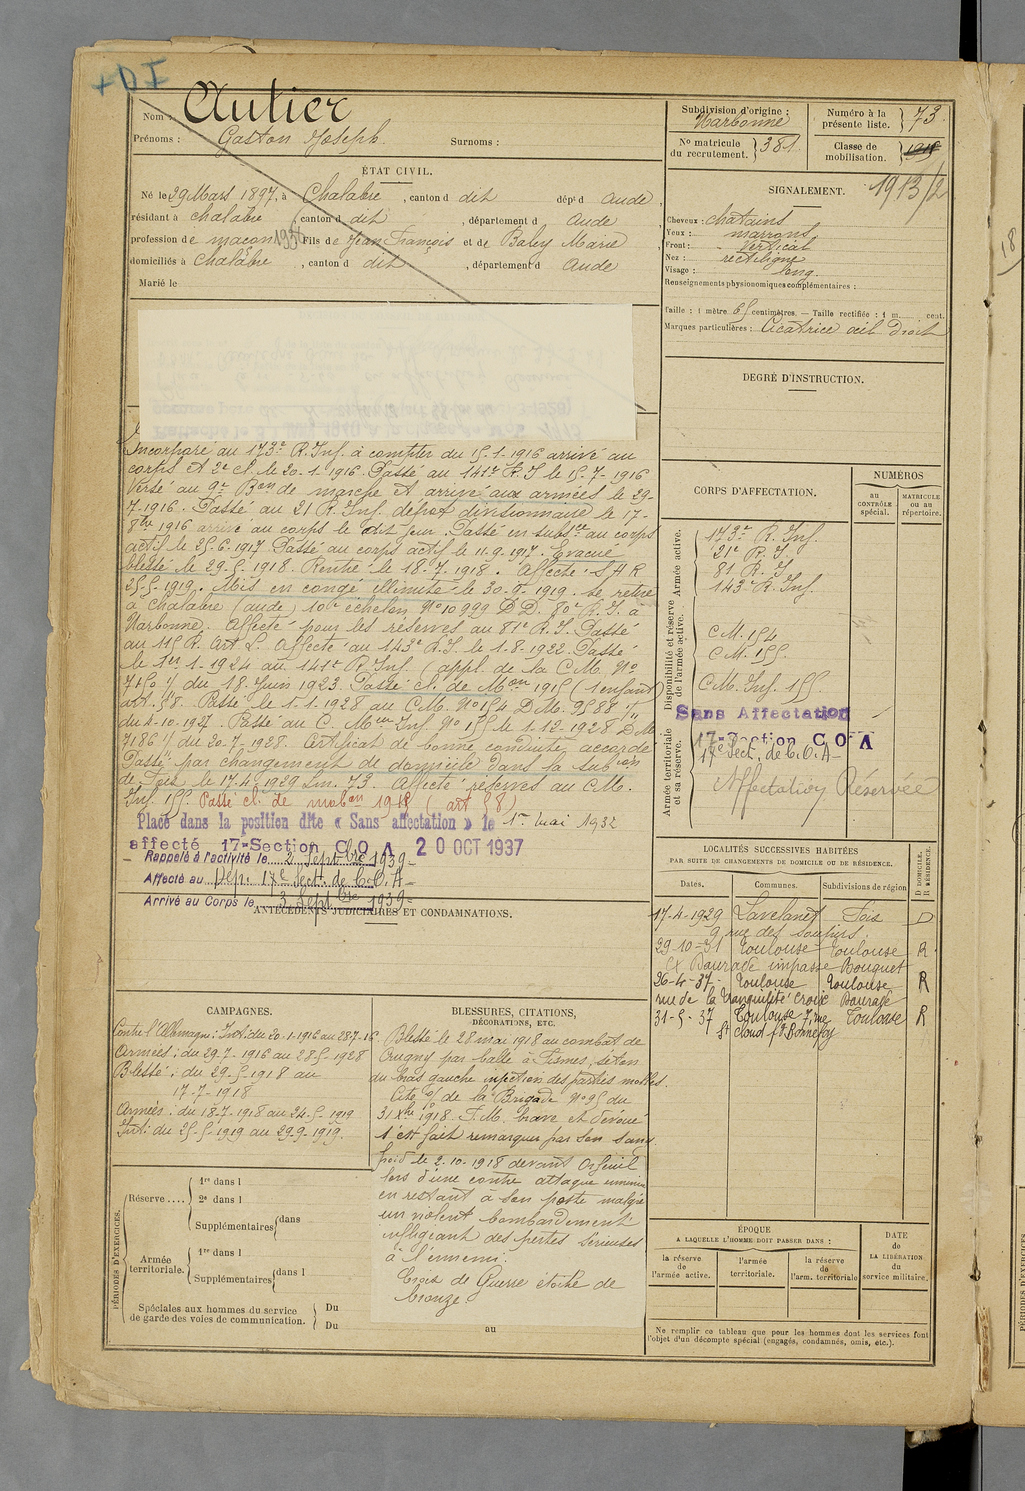 +DI
Nom : Autier
Prénoms : Gaston Joseph. Surnoms :
ÉTAT CIVIL.
Né le 29 Mars 1897, à Chalabre, canton d dit dépt d Aude,
résidant à Chalabre, canton d dit, département d Aude
profession de maçon 1934 Fils de Jean François et de Baby Marie
domiciliés à Chalabre, canton d dit, département d Aude
Marié le
Incorporé au 173e R. Inf. à compter du 15-1-1916 arrivé au
corps et 2e cl. le 20-1-1916. Passé au 141e R.I le 15-7-1916
Versé au 9e Bon de marche et arrivé aux armées le 29-
7-1916. Passé au 21 R. Inf. dépot divisionnaire le 17-
8bre 1916 arrivé au corps le dit jour. Passé en subsce au corps
actif le 25-6-1917 Passé au corps actif le 11-9-1917. Evacué
blessé le 29-5-1918. Rentré le 18-7-1918. Affecté S A R
25-5-1919. Mis en congé illimité le 30-9-1919. se retire
à Chalabre (aude) 10e échelon No 10999 D.D. 80e R.I. à
Narbonne. Affecté pour les réserves au 81e R.I. Passé
au 115 R. Art. L. Affecté au 143e R.I. le 1-8-1922. Passé
le 1er 1-1924 au 141e R. Inf. (appl. de la C.M. No
7150 1/ du 18 Juin 1923. Passé cl. de Mon 1915 (1 enfant)
art. 58. Passé le 1-1-1928 au C.M. No 154 D.M. 9588 1/11
du 4-10-1927. Passé au C. Meur Inf. No 155 le 1-12-1928 D.M.
7186 1/ du 20-7-1928. Certificat de bonne conduite accordé
Passé par changement de domicile dans la subon
de Foix le 17-4-1929 Lm. 73. Affecté réserves au C.M.
Inf. 155. Passé cl. de mobon 1913 (art 58)
Placé dans la position dite « Sans affectation » le 1er mai 1932
affecté 17e Section C O A 20 OCT 1937
Rappelé à l'activité le 2 Septbre 1939-
Affecté au Dép. 17e Sect. de C.O.A-
Arrivé au Corps le 3 Septbre 1939-
ANTÉCÉDENTS JUDICIAIRES ET CONDAMNATIONS.
CAMPAGNES.
Contre l'Allemagne: Int. du 20-1-1916 au 28-7-16.
Armées: du 29-7-1916 au 28-5-1928
Blessé: du 29-5-1918 au
17-7-1918
Armées: du 18-7-1918 au 24-5-1919
Int: du 25-5-1919 au 29-9-1919.
BLESSURES, CITATIONS,
DÉCORATIONS, ETC.
Blessé le 28 mai 1918 au combat de
Crugny par balle à Fismes, séton
du bras gauche infection des parties molles.
Cité O/ de la Brigade No 95 du
31 Xbre 1918. F.M. brave et dévoué
s'est fait remarquer par son sang
froid le 2-10-1918 devant Orfeuil
lors d'une contre attaque ennemie
en restant à son poste malgré
un violent bombardement
infligeant des pertes sérieuses
à l'ennemi.
Croix de Guerre étoile de
bronze.
PÉRIODES D'EXERCICES.
Réserve .... 1re dans l
2e dans l
Supplémentaires dans
Armée territoriale. 1re dans l
Supplémentaires dans l
Spéciales aux hommes du service
de garde des voies de communication. Du
Du au
Subdivision d'origine :
Narbonne
Numéro à la
présente liste. 73
No matricule
du recrutement. 381
Classe de
mobilisation.
1913/2
SIGNALEMENT.
Cheveux : chatains
Yeux : marrons
Front : Vertical
Nez : rectiligne
Visage : long.
Renseignements physionomiques complémentaires :
Taille : 1 mètre 65 centimètres. — Taille rectifiée : 1 m. cent.
Marques particulières : Cicatrice œil Droit
DEGRÉ D'INSTRUCTION.
CORPS D'AFFECTATION.
NUMÉROS
au
CONTRÔLE
spécial.
MATRICULE
ou au
répertoire.
Armée active.
173e R. Inf.
21e R. I.
81 R. I
143e R. Inf.
Disponibilité et réserve
de l'armée active.
C.M. 154
C.M. 155.
C.M. Inf. 155
Sans Affectation
Armée territoriale
et sa réserve.
17-Section C O A
17e Sect. de C.O.A-
Affectation Réservée
LOCALITÉS SUCCESSIVES HABITÉES
PAR SUITE DE CHANGEMENTS DE DOMICILE OU DE RÉSIDENCE.
D DOMICILE.
R RÉSIDENCE.
Dates. Communes. Subdivisions de région
17-4-1929 Lavelanet Foix D
9 rue des soupirs.
29-10-31 Toulouse Toulouse R
Cx Daurade impasse Bouquet
26-4-37- Toulouse Toulouse R
rue de la Tranquilité Croix Daurade
31-5-37 Toulouse 7, rue Toulouse R
St Cloud fg Bonnefoy
ÉPOQUE
A LAQUELLE L'HOMME DOIT PASSER DANS :
la réserve
de
l'armée active.
l'armée
territoriale.
la réserve
de
l'arm. territoriale
DATE
de
LA LIBÉRATION
du
service militaire.
Ne remplir ce tableau que pour les hommes dont les services font
l'objet d'un décompte spécial (engagés, condamnés, omis, etc.).
18
PÉRIODES D'EXERCICES